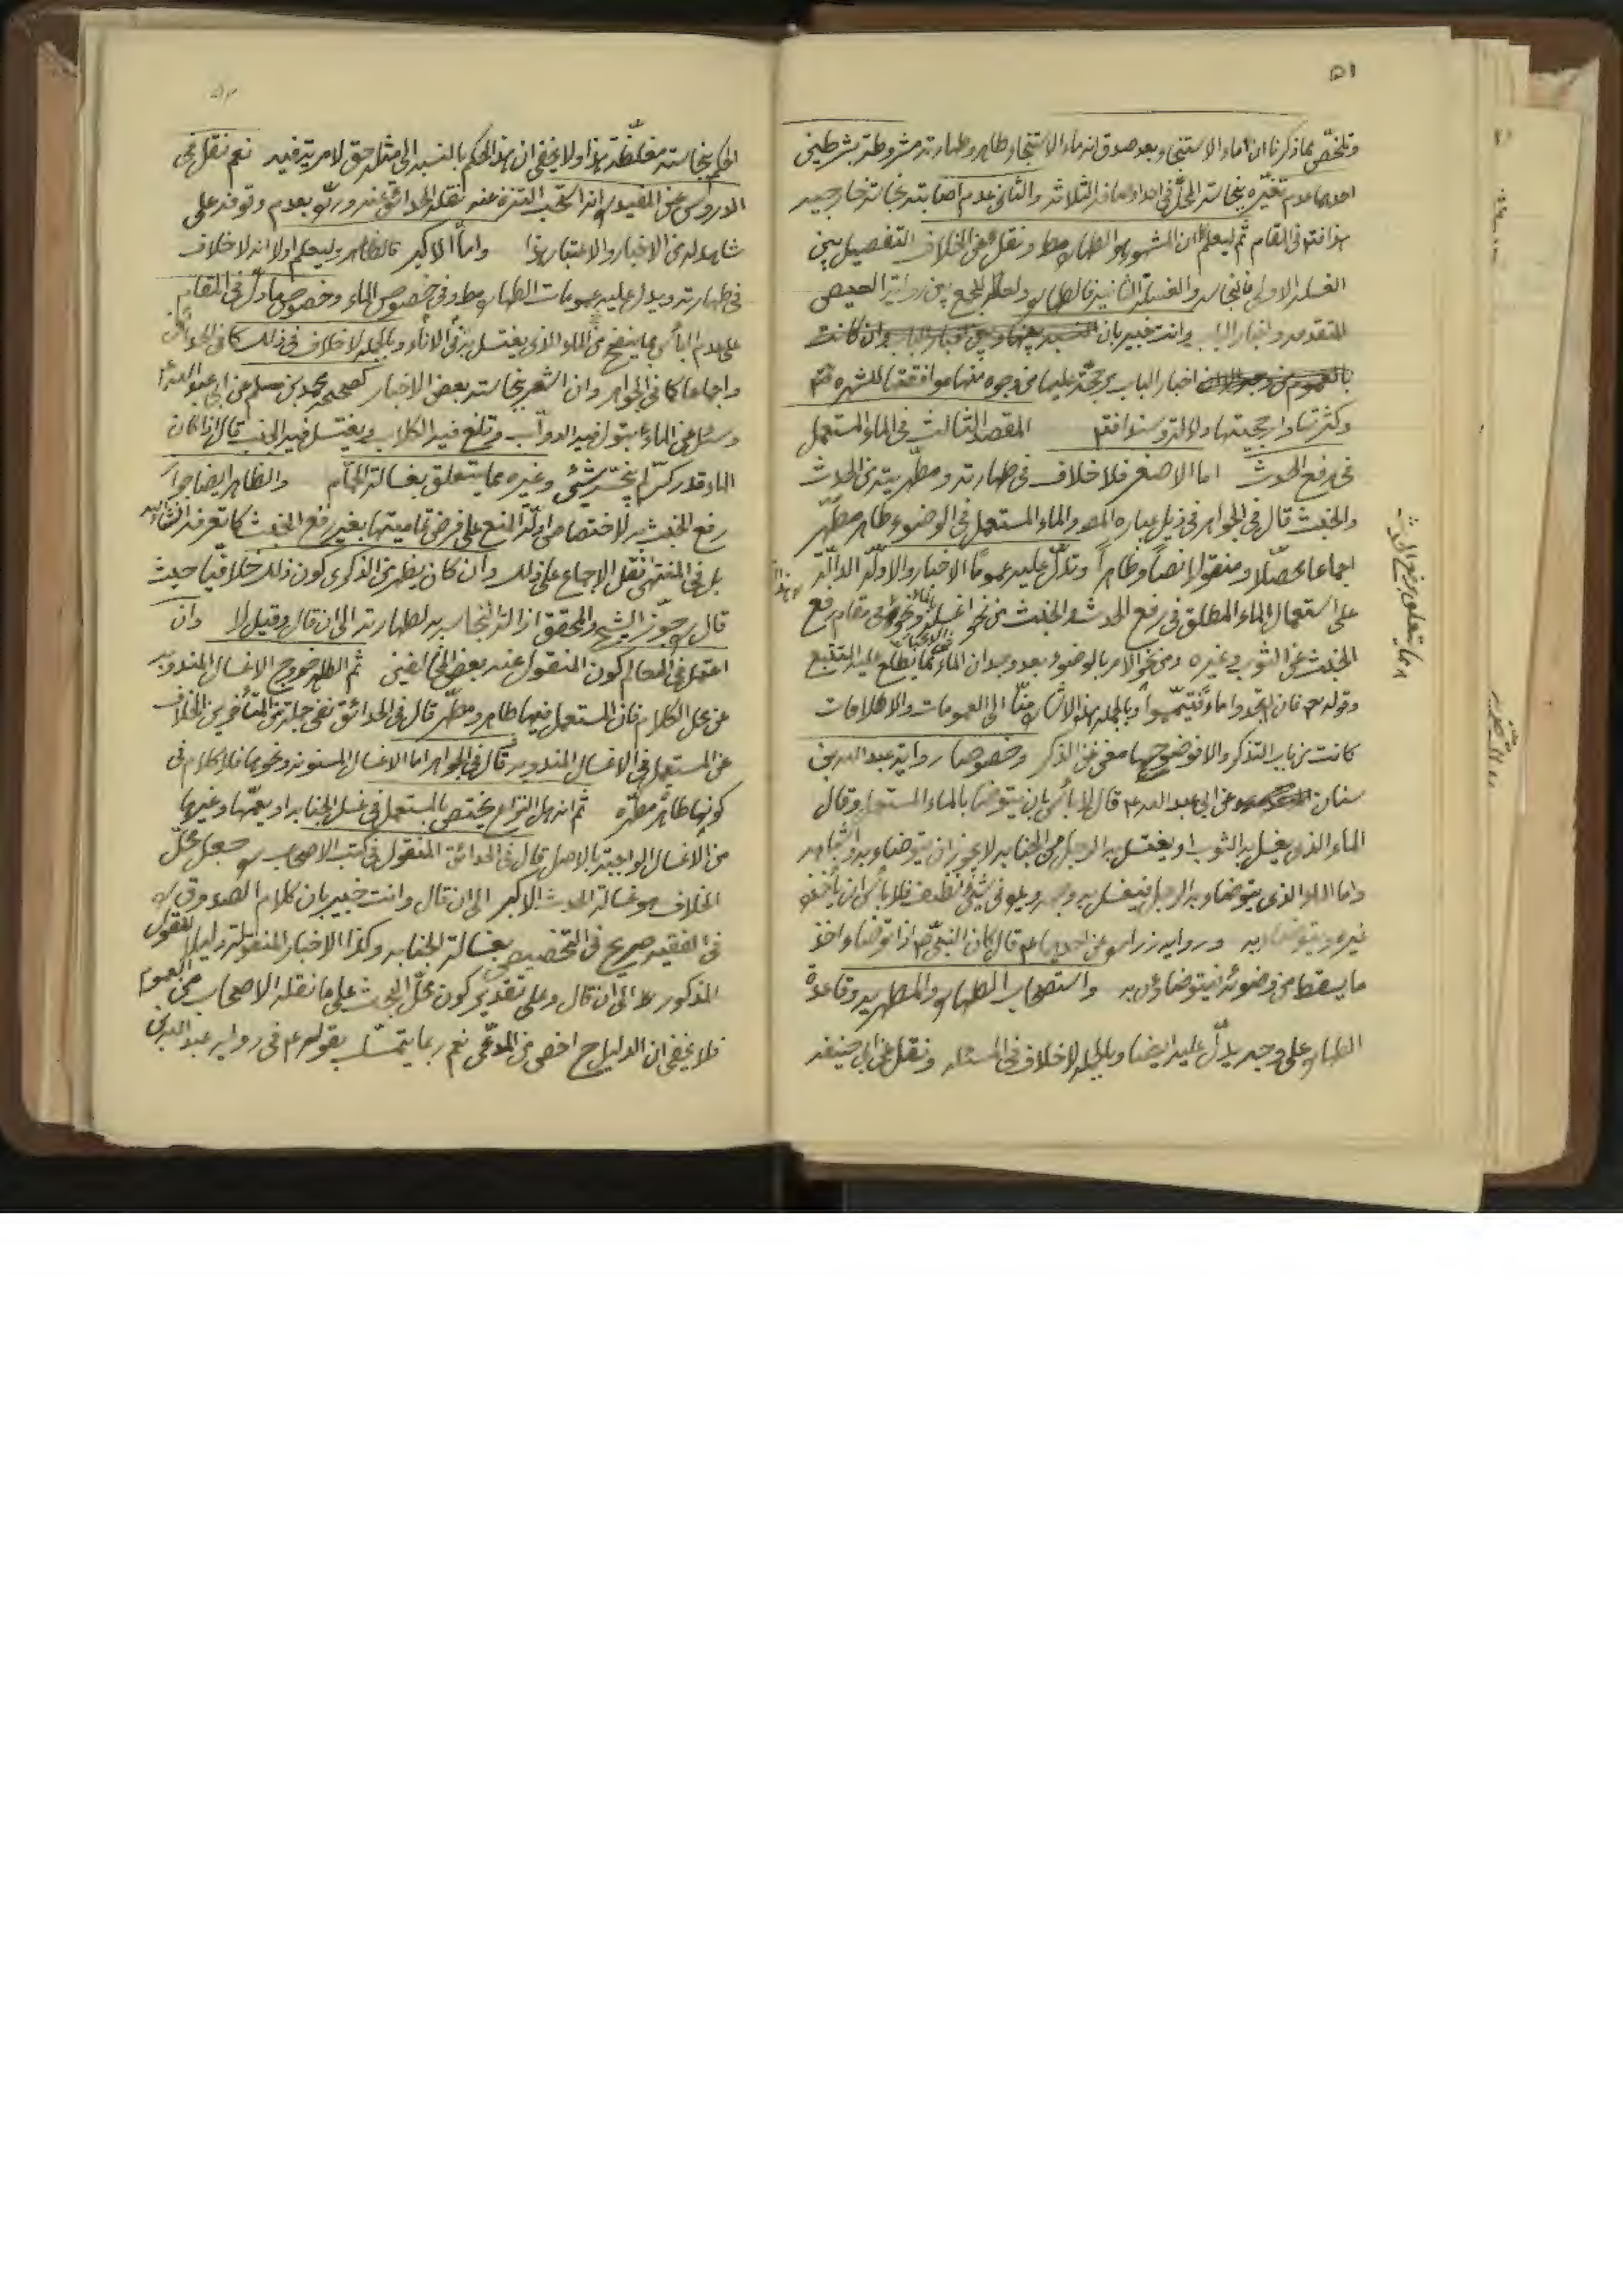 ٥١
وتلخّص مما ذكرنا ان ماء الاستنجاء وبعد صدق انه ماء الاستنجاء طاهر وطهارته مشروطة بشرطين
احدهما عدم تغيّره بنجاسة المحلّ في احد اوصافه الثلاثة والثاني عدم اصابته نجاسة خارجيه
هذا فتم في المقام ثم ليعلم ان المشهور هو الطهاره مط ونقل عن الخلاف التفصيل بين
الغسله الاولى فالنجاسه والغسلة الثانية فالطهاره ولعله للجمع بين رواية العيص
المتقدمه واخبار الباب وانت خبير بان النسبه بينها وبين اخبار الباب وان كانت
بالعموم من وجه اخبار الباب مرجّحة عليها من وجوه منها موافقتها للشهره
وكثرتها وارجحيتها دلالة وسندا فتم المقصد الثالث في الماء المستعمل
في رفع الحدث اما الاصغر فلا خلاف في طهارته ومطهّريته من الحدث
والخبث قال في الجواهر في ذيل عباره المصـ والماء المستعمل في الوضوء طاهر مطهّر
اجماعا محصّلا ومنقولا نصاً وظاهراً وتدلّ عليه عموماً الاخبار والادلّة الدالّة
على استعمال الماء المطلق في رفع الحدث والخبث من نحو اغسله ونحوه في مقام رفع
الخبث عن الثوب وغيره ومن نحو الامر بالوضوء بعد وجدان الماء مما يطّلع عليه المتتبع
وقوله تعـ فان لم تجدوا ماءً فتيمّموا وبالجمله هذه الاشاره منّا الى العمومات والاطلاقات
كانت من باب التذكر والا فوضوحها مغنى عن الذكر وخصوصا رواية عبد الله بن
سنان عن ابي عبد الله ع قال لا بأس بان يتوضا بالماء المستعمل وقال
الماء الذي يغسل به الثوب او يغتسل به الرجل من الجنابه لا يجوز ان يتوضاء به واشباهه
واما الماء الذي يتوضاء به الرجل فيغسل به وجهه ويده في شئ نظيف فلا بأس ان يأخذه
غيره ويتوضاء به وروايه زراره عن احدهما ع قال كان النبيّ ص اذا توضاء اخذ
ما يسقط من وضوئه فيتوضاءون به واستصحاب الطهاره والمطهريه وقاعدة
الطهاره على وجه يدلّ عليه ايضا وبالجمله لا خلاف في المسئله ونقل عن ابي حنيفه
ما يتعلق برفع الحدث
الحكم بنجاسته مغلّظة هذا ولا يخفى ان هذا الحكم بالنسبه الى مثله حق لا مرية فيه نعم نقل في
الدروس عن المفيد ره انه استحب التنزه عنه نقله الحدائق عنه وردّه بعدم وقوفه على
شاهد له من الاخبار والاعتبار هذا واما الاكبر فالظاهر وليعلم اولا انه لا خلاف
في طهارته ويدل عليه عمومات الطهاره مط وفي خصوص الماء وخصوص ما دلّ في المقام
على عدم البأس بما ينضح من الماء الذي يغتسل به في الاناء وبالجمله لا خلاف في ذلك كما في الحدائق
واجماعا كما في الجواهر وان اشعر بنجاسته بعض الاخبار كصحيحه محمد بن مسلم عن ابي عبد الله ع
وسئل عن الماء تبول فيه الدوابّ وتلغ فيه الكلاب ويغتسل فيه الجنب قال اذا كان
الماء قدر كرّ لم ينجّسه شئ وغيره مما يتعلق بغسالة الحمّام والظاهر ايضا جواز
رفع الخبث به لاختصاص ادلّة المنع على فرض تماميتها بغير رفع الخبث كما تعرفه انشاء الله
بل في المنتهى نقل الاجماع على ذلك وان كان يظهر من الذكرى كون ذلك خلافيّا حيث
قال ره جوّز الشيخ والمحقق ازالة النجاسه به لطهارته الى ان قال وقيل لا وان
احتمل في المعالم كون المنقول عنه بعض المخالفين ثم الظاهر خروج الاغسال المندوبه
عن محل الكلام فان المستعمل فيها طاهر ومطهّر قال في الحدائق نفى جملة من المتأخرين الخلاف
عن المستعمل في الاغسال المندوبه قال في الجواهر اما الاغسال المسنونه ونحوها فلا كلام في
كونها طاهره مطهّره ثم انه هل النزاع يختص بالمستعمل في غسل الجنابه او يعمّها وغيرها
من الاغسال الواجبة بالاصل قال في الحدائق المنقول في كتب الاصحاب ره جعل محلّ
الخلاف هو غسالة الحدث الاكبر الى ان قال وانت خبير بان كلام الصدوق ره
في الفقيه صريح في التخصيص بغسالة الجنابه وكذا الاخبار المنقولة دليلا للقول
المذكور الى ان قال وعلى تقدير كون محلّ البحث على ما نقله الاصحاب من العموم
فلا يخفى ان الدليل ح اخص من المدّعى نعم ربما يتمسّك بقوله ع في روايه عبد الله بن